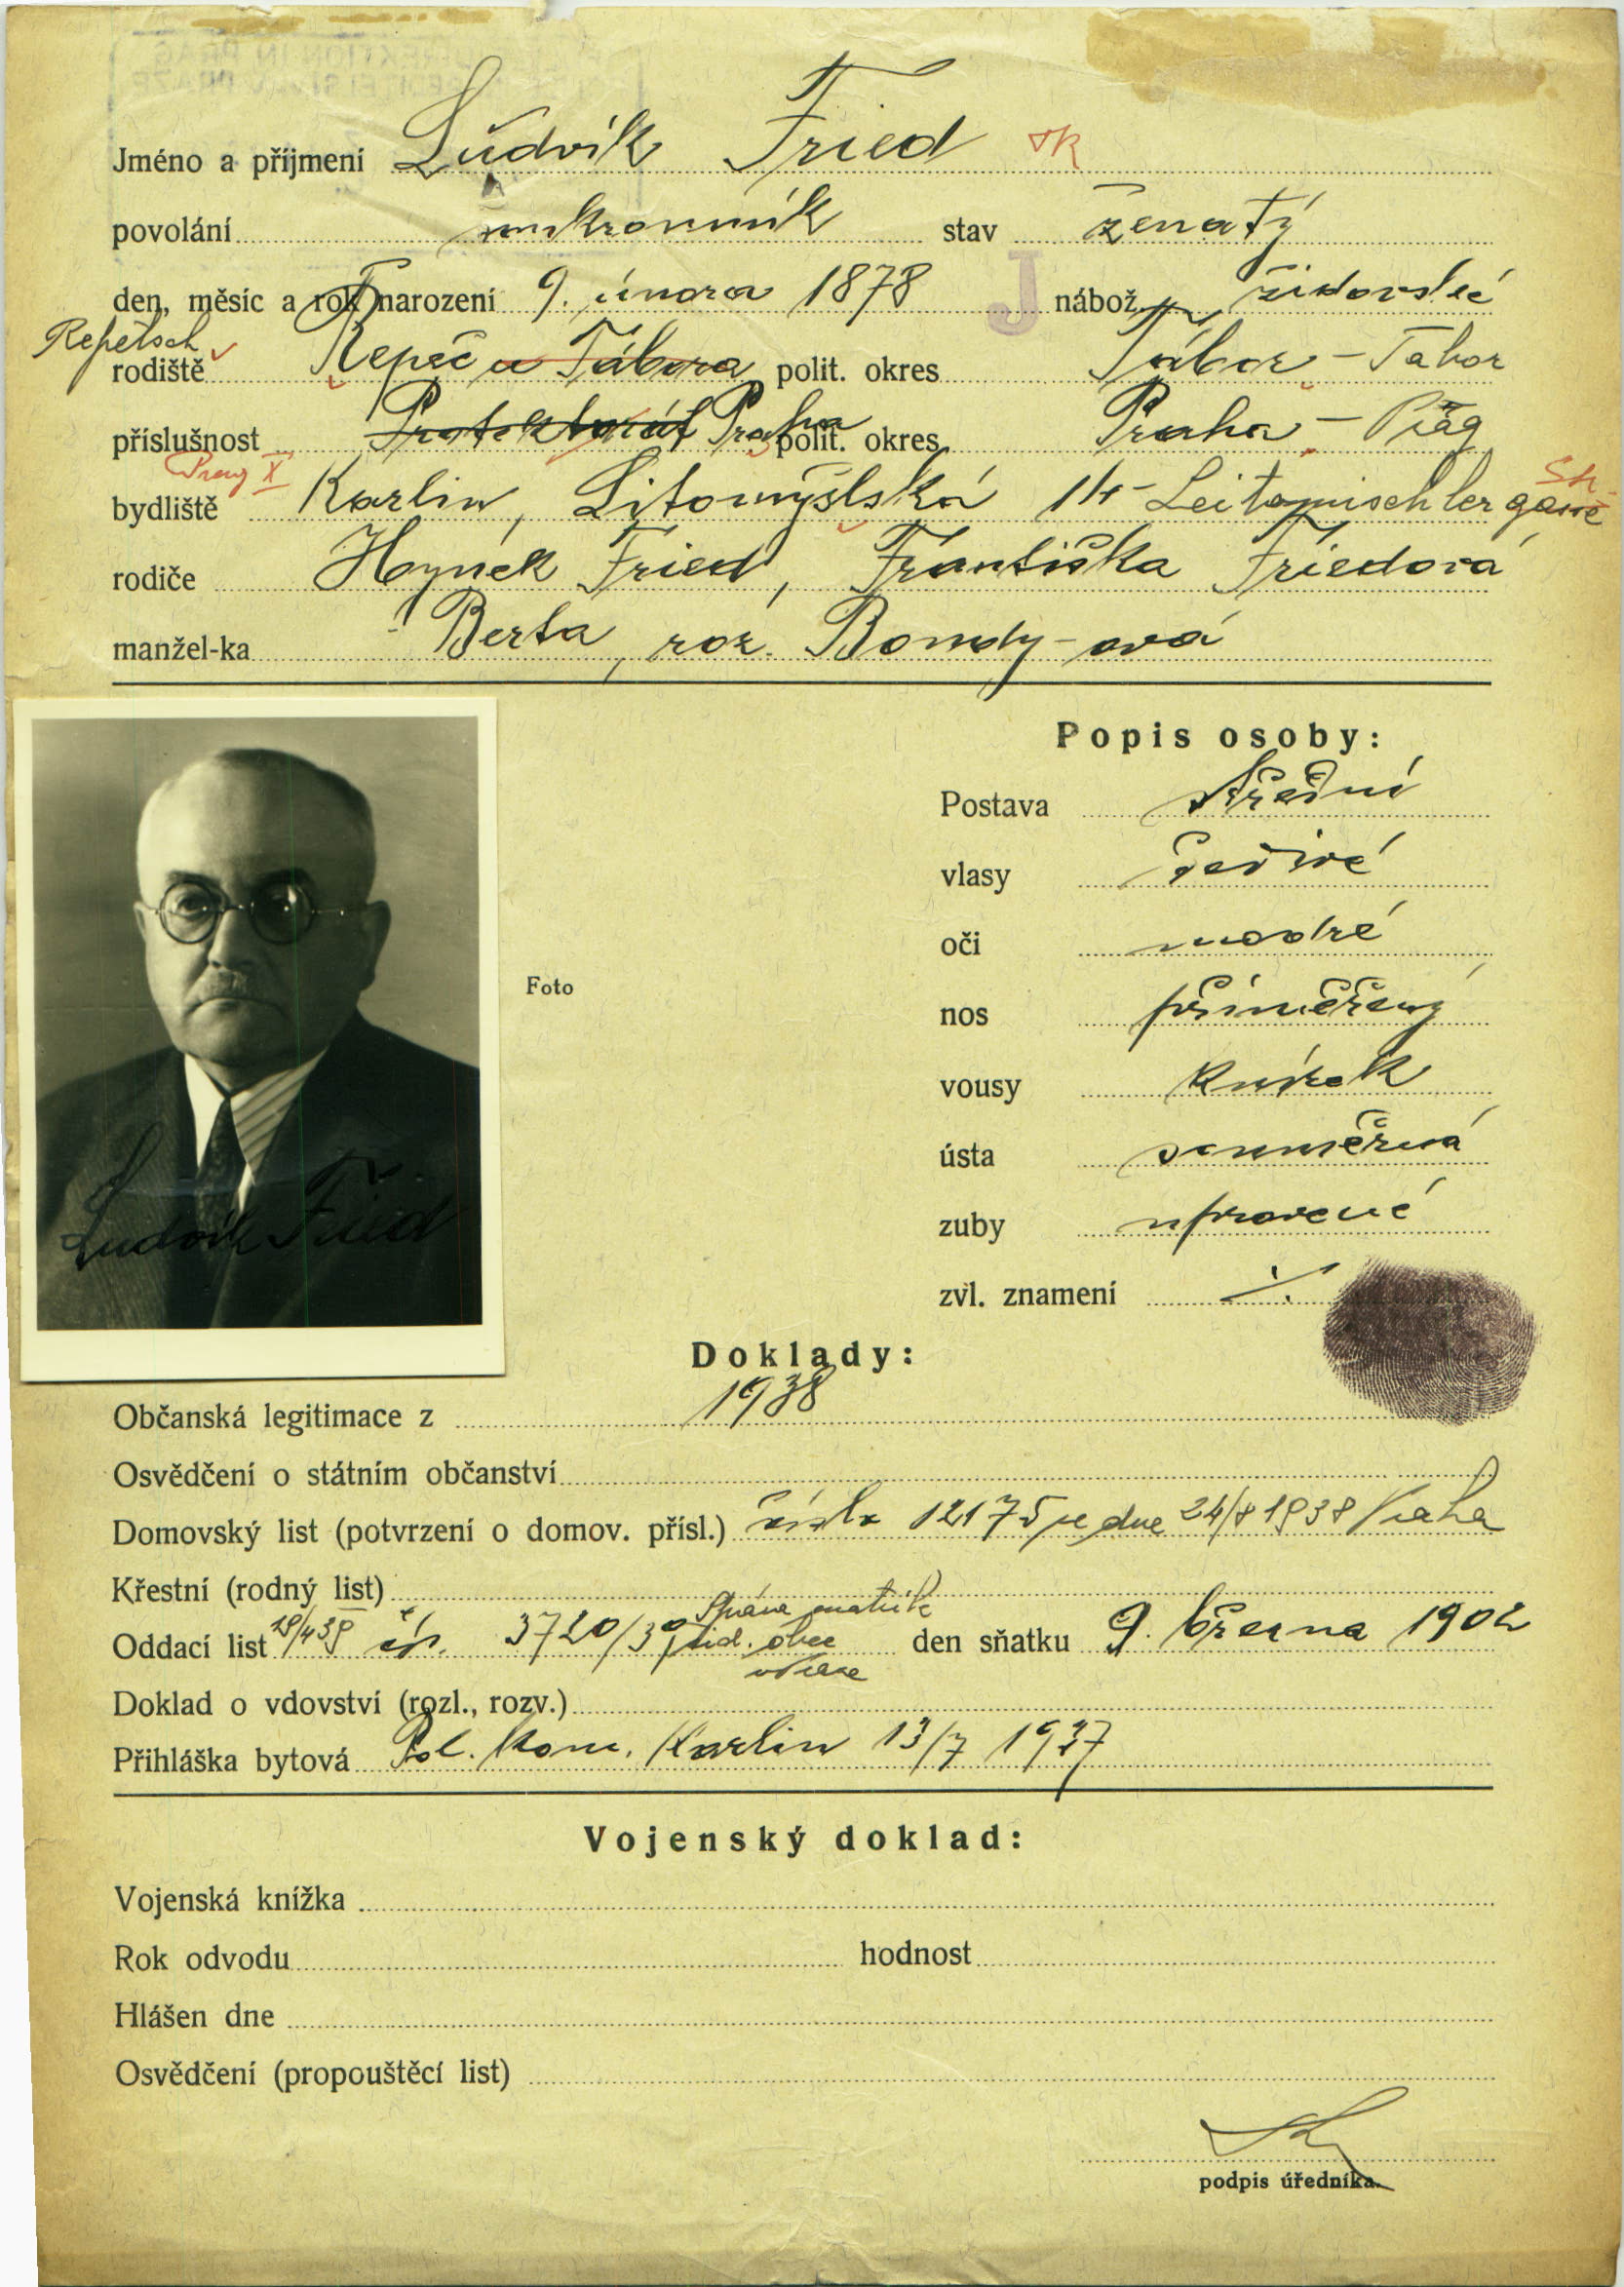 Jméno a příjmení Ludvík Fried
povolání soukromník stav ženatý
den, měsíc a rok narození 9. února 1878 J nábož. židovské
Repetsch
rodiště Řepeč u Tábora polit. okres Tábor - Tabor
příslušnost Protektorát Praha polit. okres Praha - Prag
Prag X
bydliště Karlín, Litomyšlská 14 - Leitomischlergasse
rodiče Hynek Fried, Františka Friedová
manžel-ka Berta, roz. Bondy-ová
Popis osoby:
Postava střední
vlasy šedivé
oči modré
Foto
nos přiměřený
vousy knírek
ústa souměrná
zuby upravené
zvl. znamení ./.
Ludvík Fried
Doklady:
Občanská legitimace z 1938
Osvědčení o státním občanství
Domovský list (potvrzení o domov. přísl.) číslo 12175 ze dne 24/8 1938 Praha
Křestní (rodný list)
Správa matrik
Oddací list 19/4 39 čp. 3720/39 žid. obce den sňatku 9. března 1902
v Praze
Doklad o vdovství (rozl., rozv.)
Přihláška bytová Pol. kom. Karlín 13/7 1937
Vojenský doklad:
Vojenská knížka
Rok odvodu hodnost
Hlášen dne
Osvědčení (propouštěcí list)
podpis úředníka.